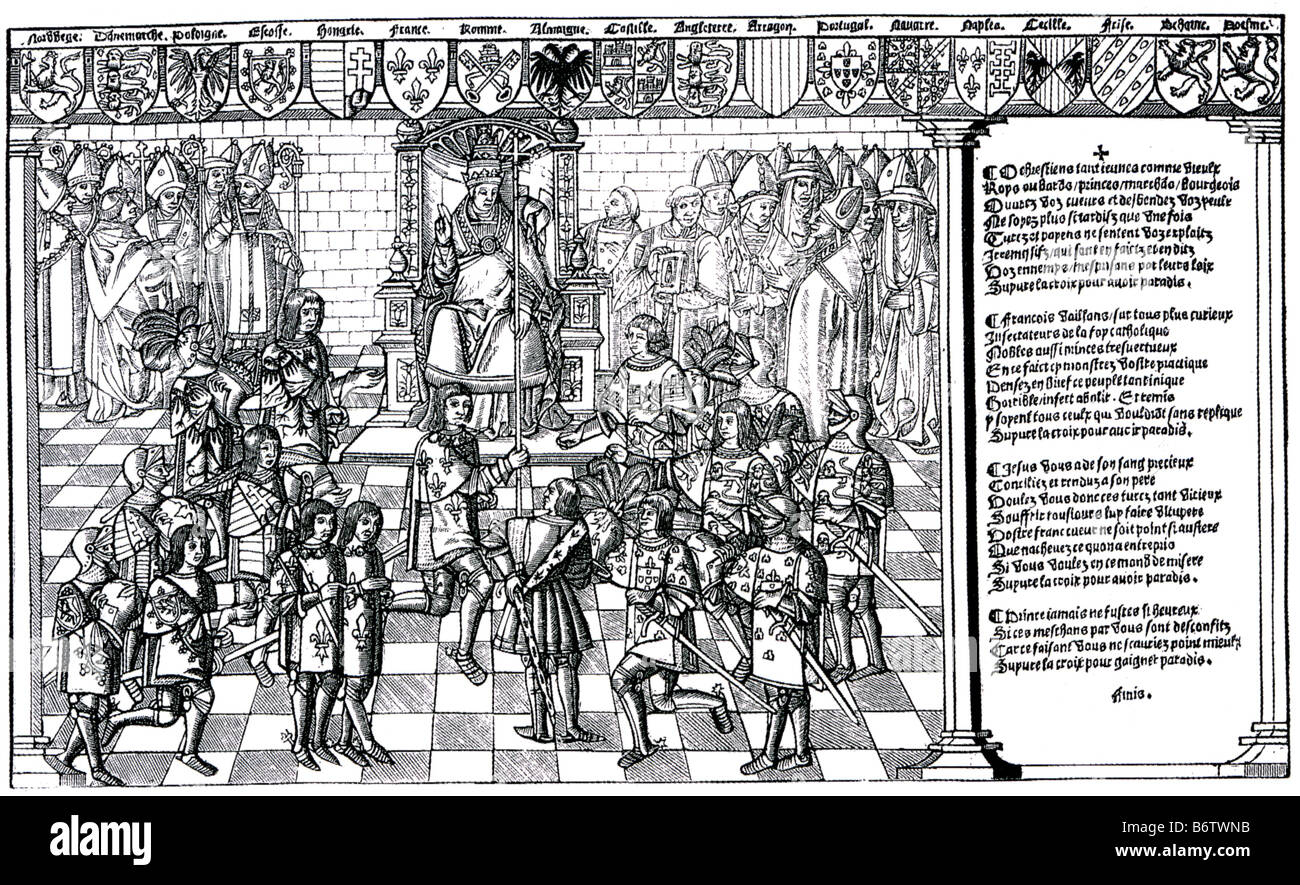 Nordvege. Danemarche. Poloigne. Escosse. Hongrie. France. Romme. Almaigne. Castille. Angleterre. Arragon. Portugal. Navarre. Naples. Cecille. Frise. Boesme.
O Chrestiens tant ieunes comme vieulx
Roys ou Ducs / princes / marchãs / Bourgeois
Ouurez voz cueurs et desbendez voz yeulx
Ne soyez plus si tardifz que vne fois
Turcz et payens ne sentent voz exploitz
qui sont en faictz et en ditz
Voz ennemys / par leurs loix
Suyure la croix pour auoir paradis.
Francois vaillans / sur tous plus curieux
de la foy catholique
Nobles aussi princes tresuertueux
En ce faict cy monstrez vostre practique
Pensez en brief ce peuple tant inique
Horrible / infert abolir. Et remis
y soyent tous ceulx qui vouldrõt sans replique
Suyure la croix pour auoir paradis.
Jesus vous a de son sang precieux
Conciliez et renduz a son pere
Voulez vous donc ces turcz tant vicieux
Souffrir tousiours luy faire vitupere
Vostre franc cueur ne soit point si austere
Que nacheuez ce quon a entrepris
Si vous voulez en ce mond de misere
Suyure la croix pour auoir paradis.
Prince iamais ne fustes si heureux
Si ces meschans par vous sont desconfitz
Car ce faisant vous ne scauriez point mieulx
Suyure la croix pour gaigner paradis.
Finis.
alamy
Image ID: B6TWNB
www.alamy.com